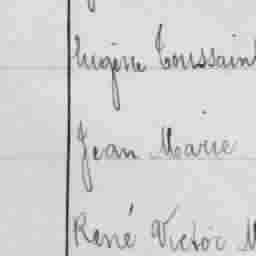 Eugène Toussaint
Jean Marie
René Victor M